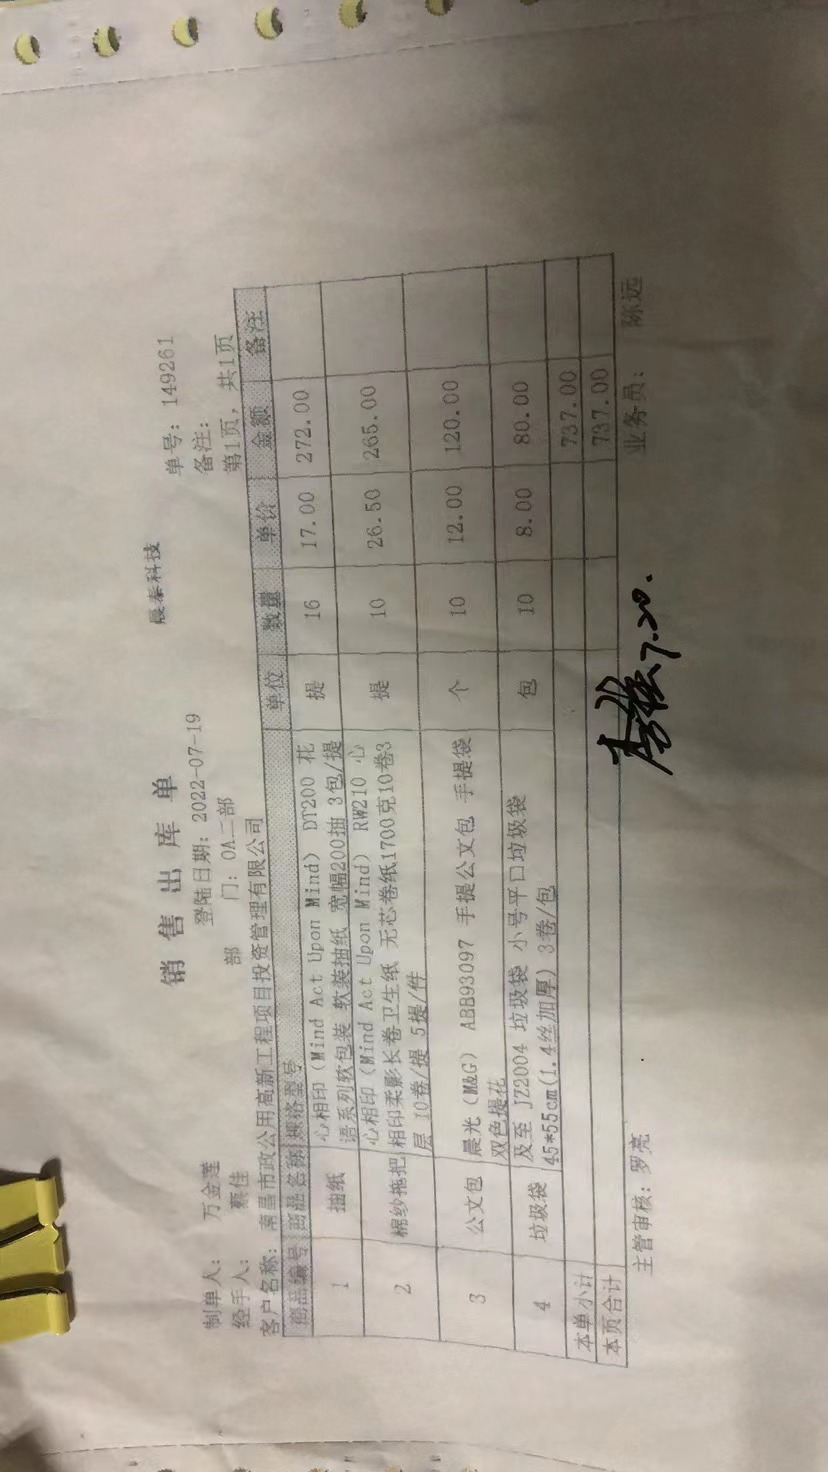 销 售 出 库 单
晨泰科技
制单人: 万金莲 登陆日期: 2022-07-19 单号: 149261
经手人: 蔡佳 部 门: OA二部 备注:
客户名称: 南昌市政公用高新工程项目投资管理有限公司 第1页, 共1页
商品编号 商品名称 规格型号 单位 数量 单价 金额 备注
1 抽纸 心相印 (Mind Act Upon Mind) DT200 花 提 16 17.00 272.00
语系列软包装 软装抽纸 宽幅200抽 3包/提
2 棉纱拖把 心相印 (Mind Act Upon Mind) RW210 心 提 10 26.50 265.00
相印柔影长卷卫生纸 无芯卷纸1700克10卷3
层 10卷/提 5提/件
3 公文包 晨光 (M&G) ABB93097 手提公文包 手提袋 个 10 12.00 120.00
双色提花
4 垃圾袋 及至 JZ2004 垃圾袋 小号平口垃圾袋 包 10 8.00 80.00
45*55cm(1.4丝加厚) 3卷/包
本单小计 737.00
本页合计 737.00
主管审核: 罗亮 业务员: 陈远
7.20.